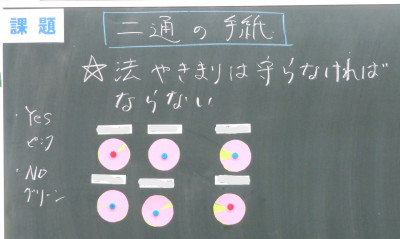 課題
二通の手紙
☆法やきまりは守らなければ
ならない
・Yes
ピンク
・NO
グリーン